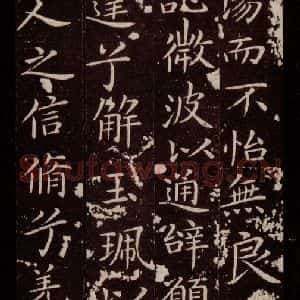 蕩而不怡無良
託微波以通辭願
達兮解玉珮以
人之信脩兮羌
Shufawang.CN